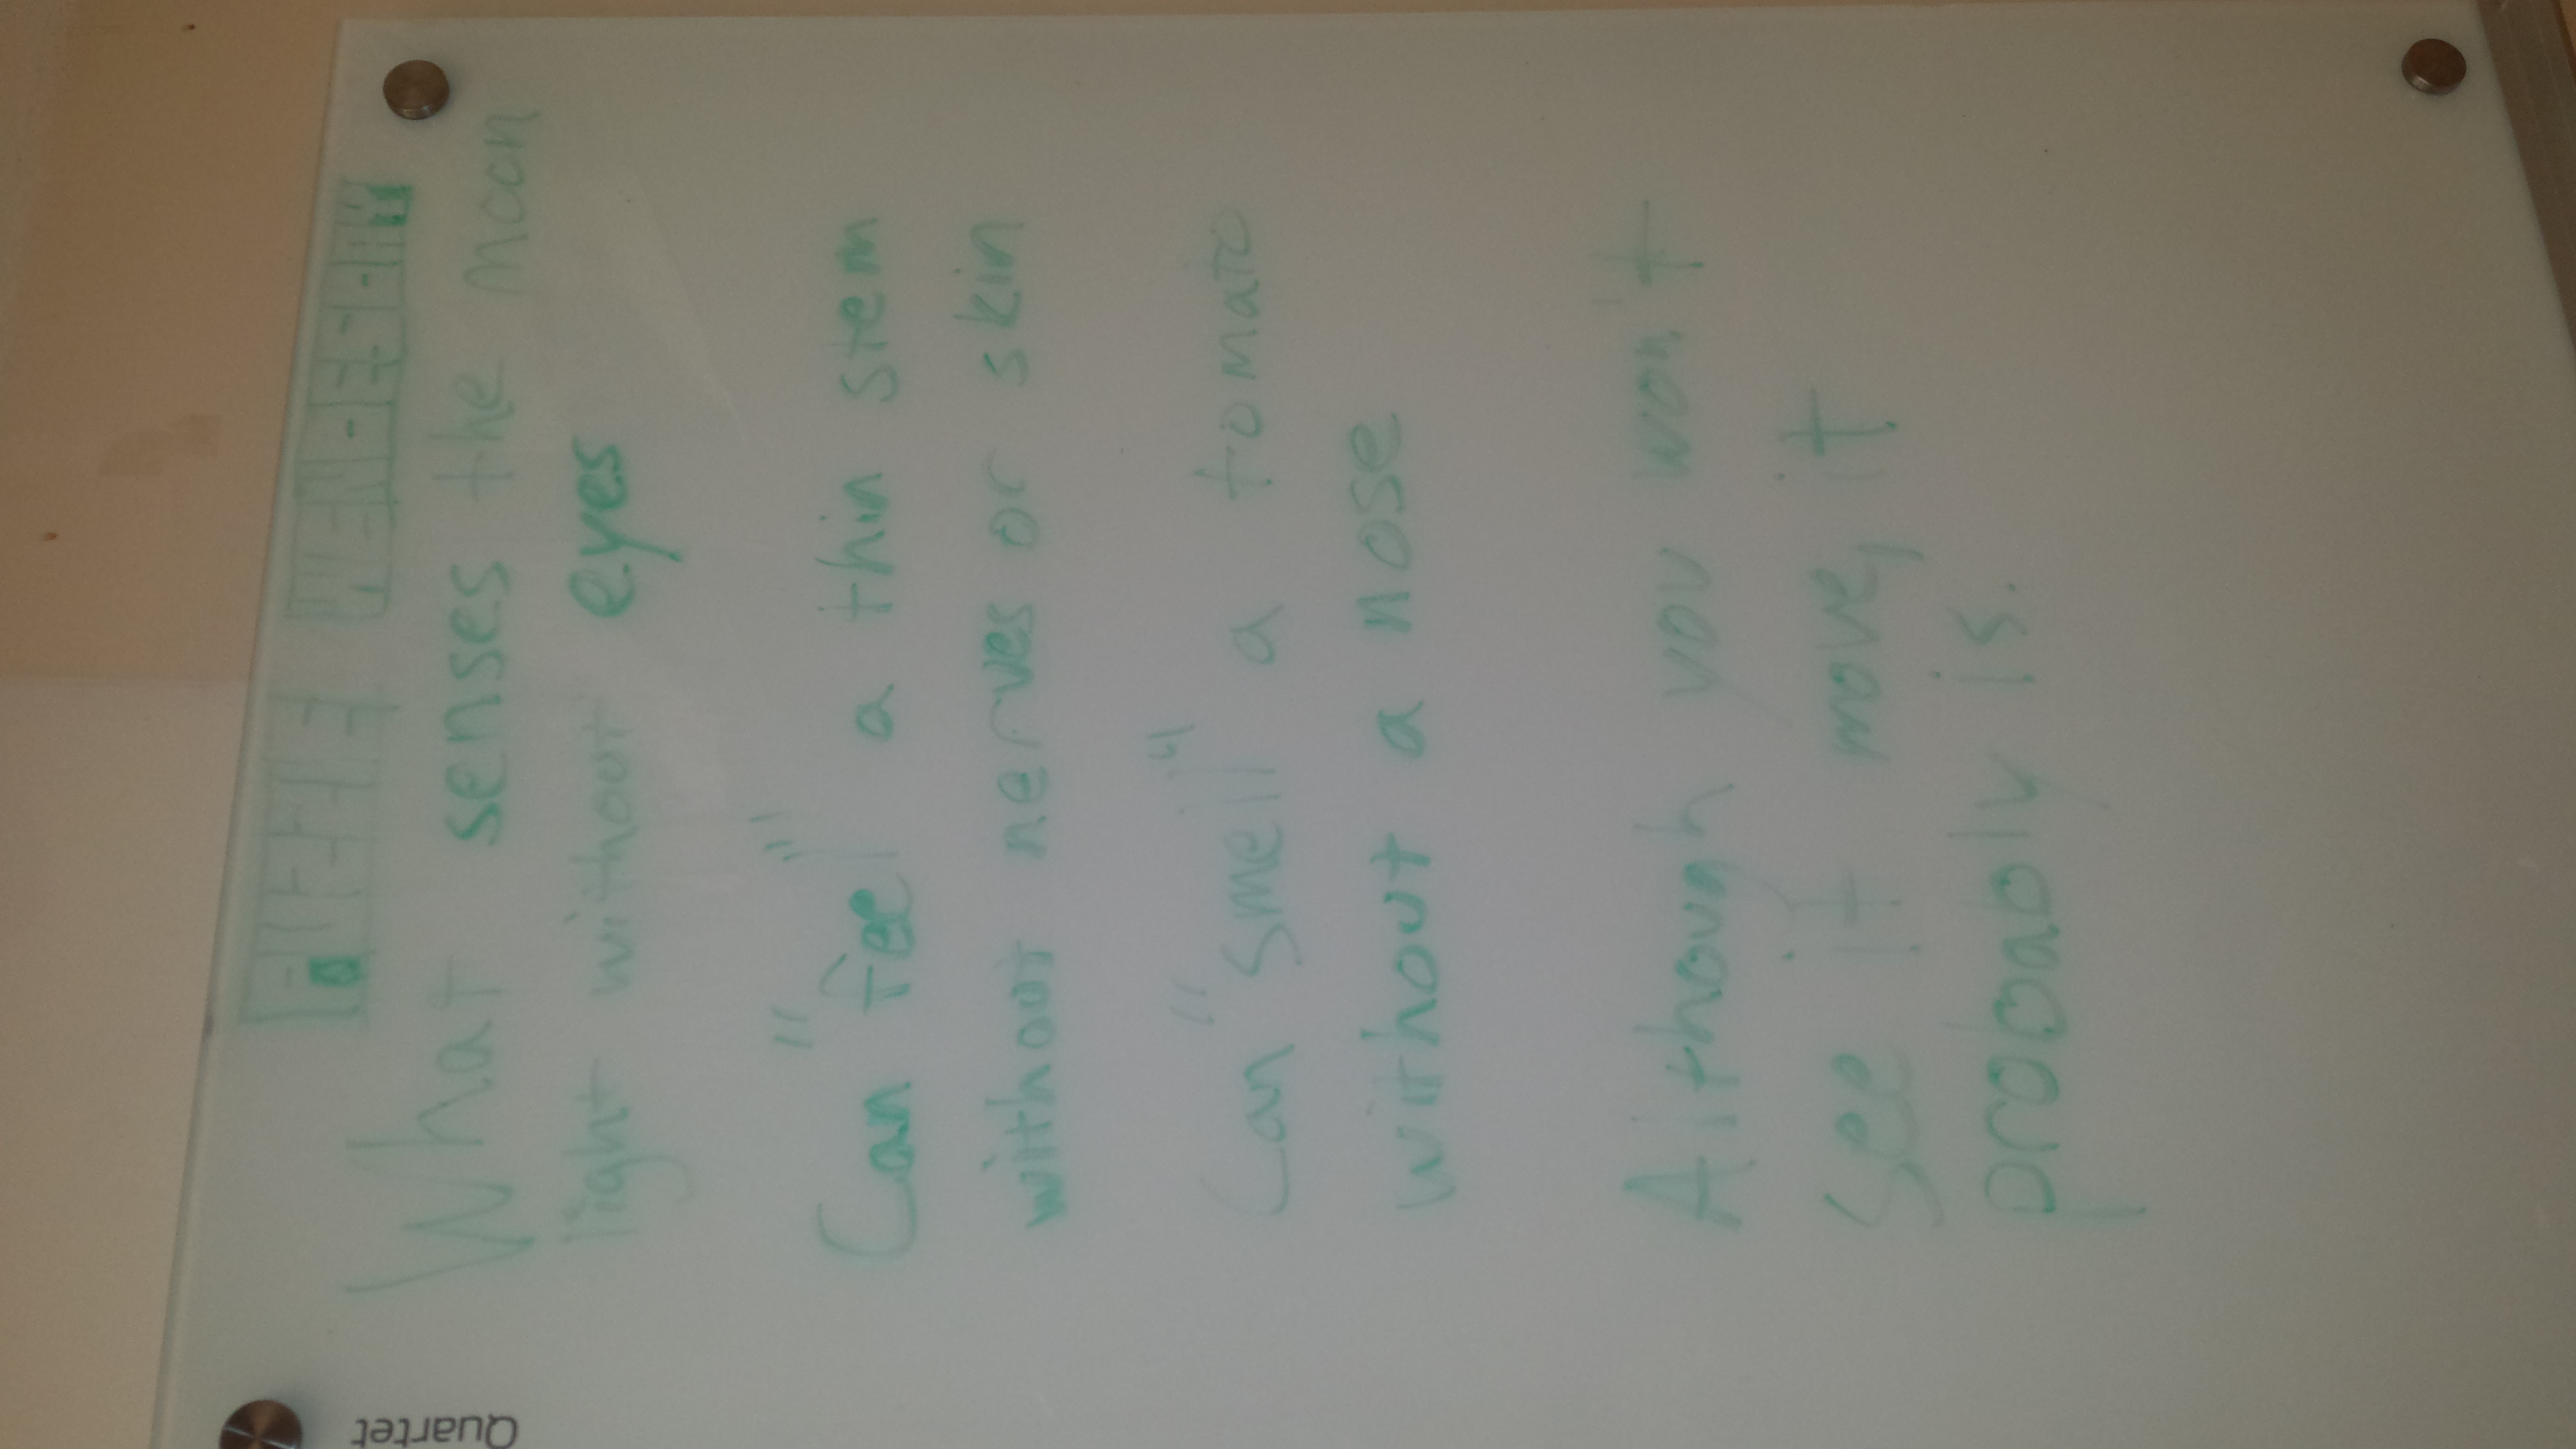 Quartet
What senses the moon
light without eyes
Can "feel" a thin stem
without nerves or skin
Can "smell" a tomato
without a nose
Although you won't
see it move, it
probably is.